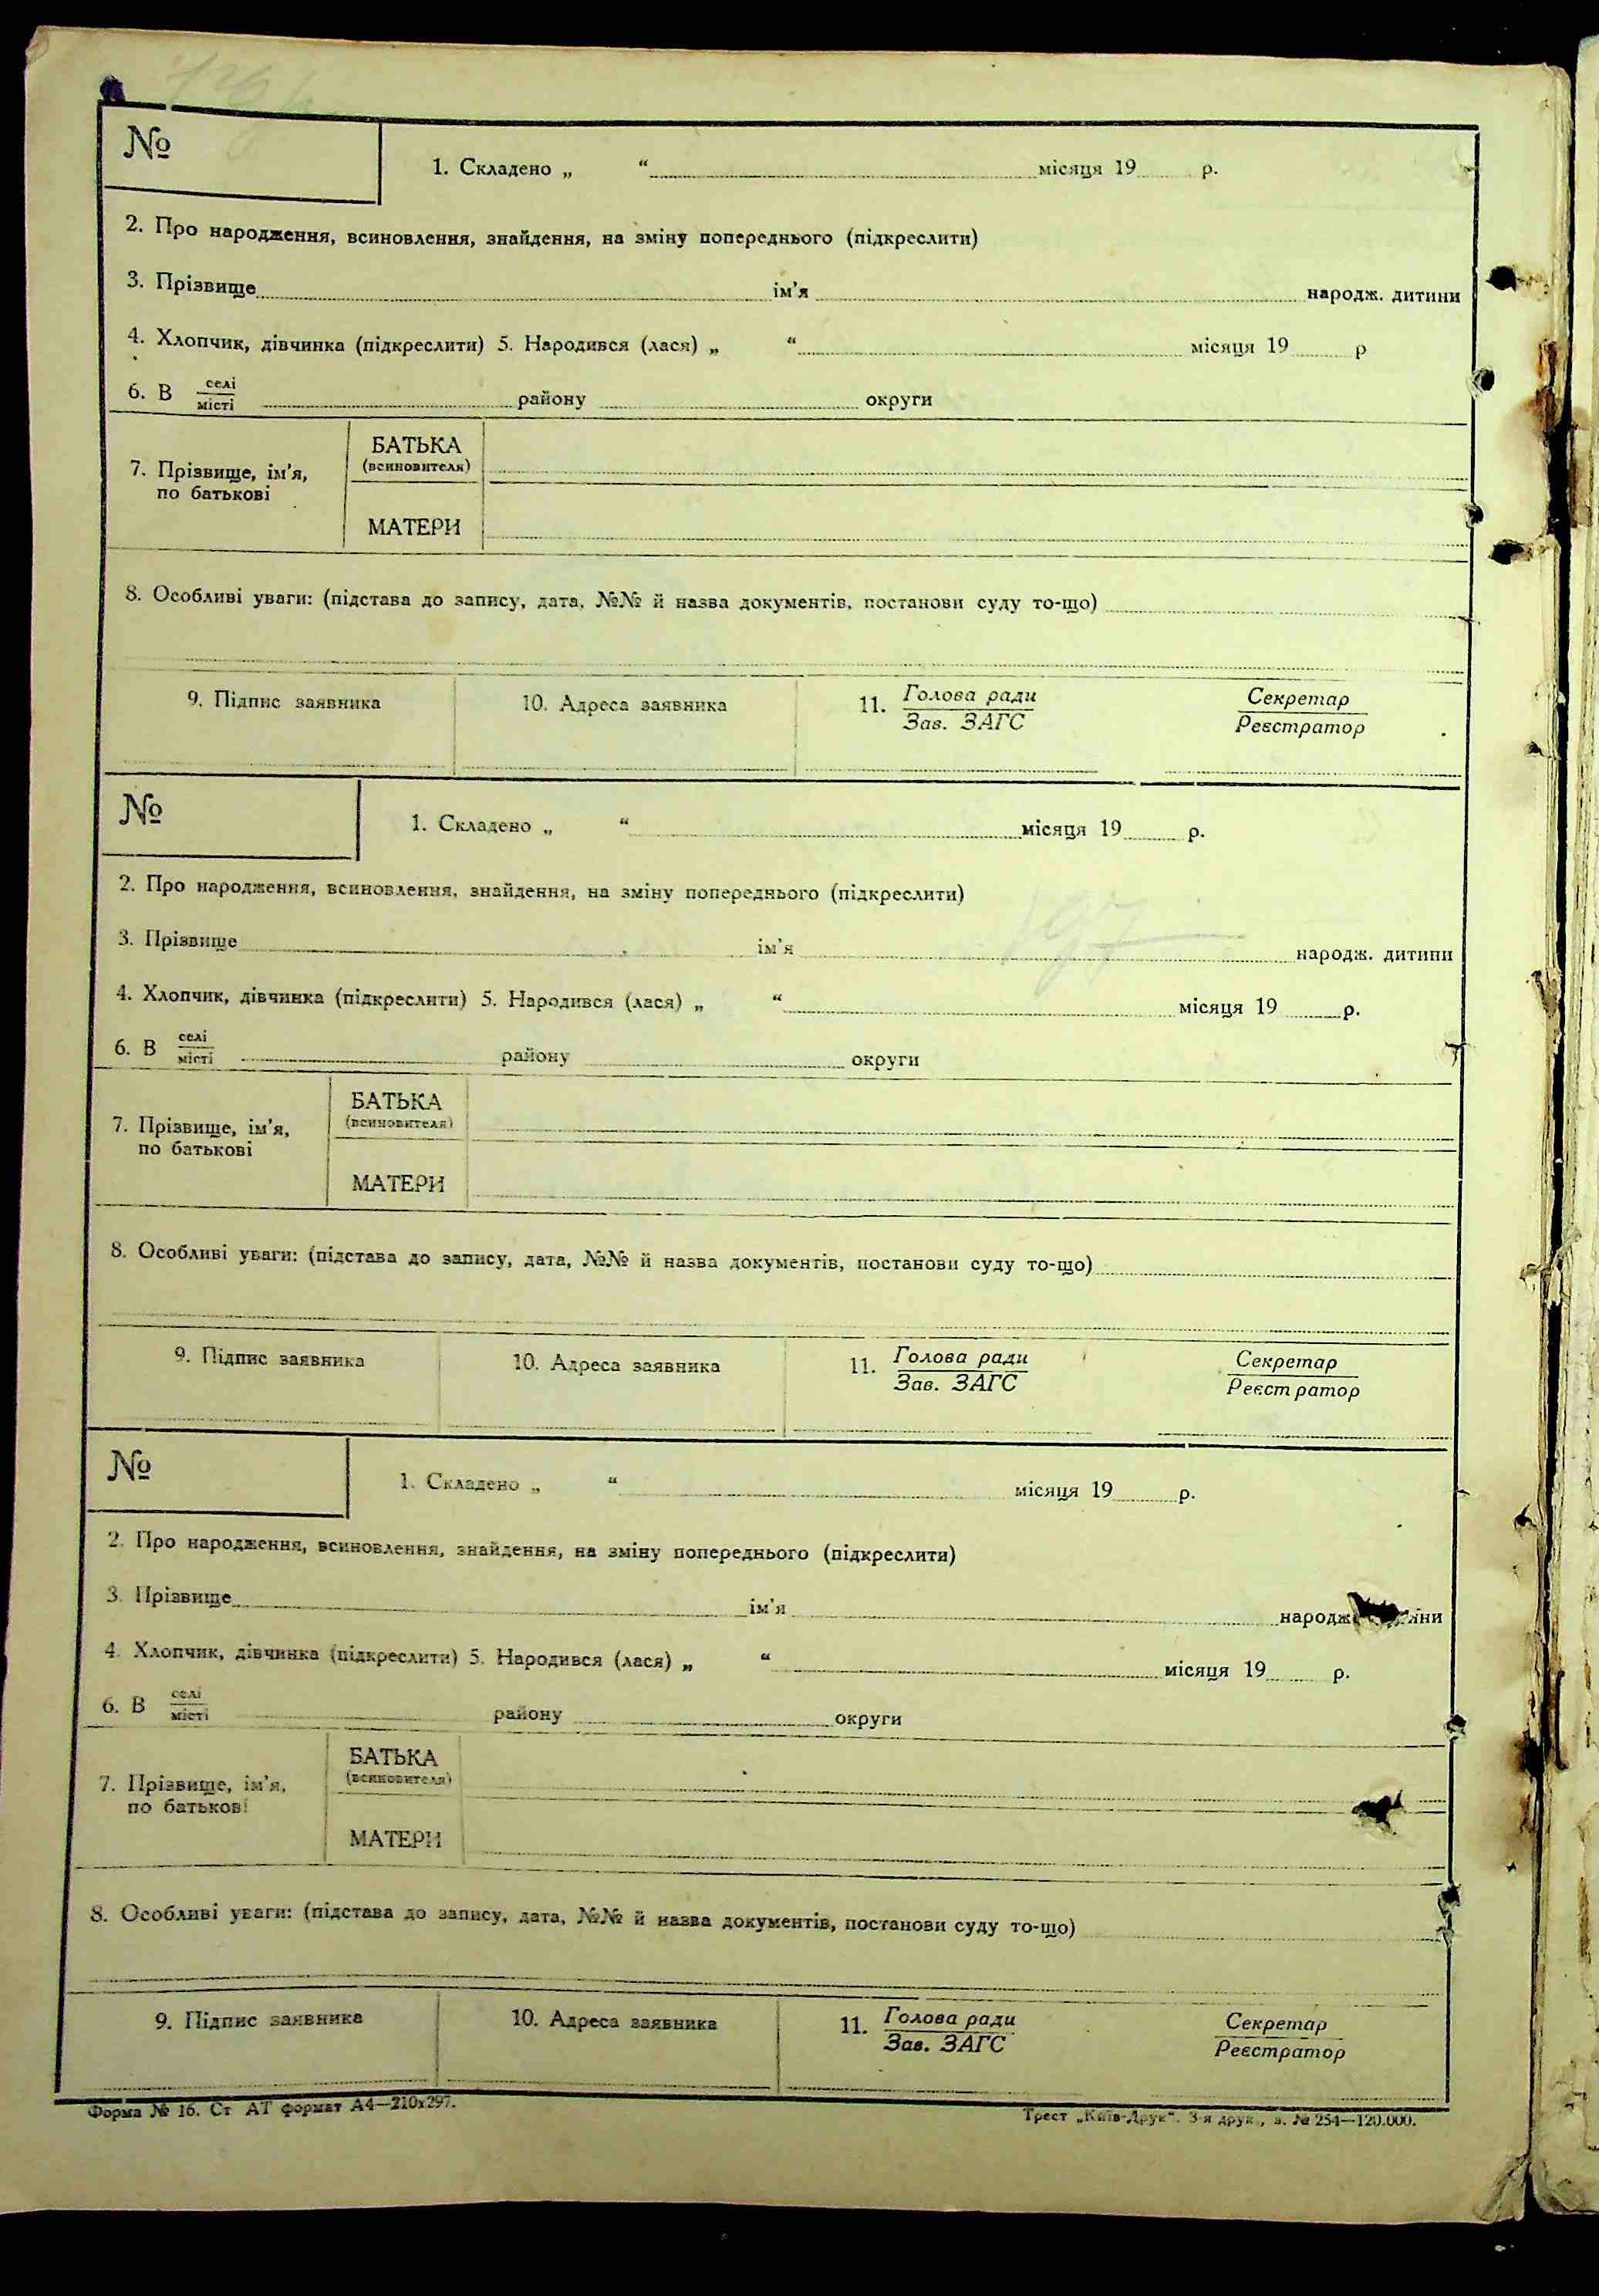 №
1. Складено „ “ місяця 19 р.
2. Про народження, всиновлення, знайдення, на зміну попереднього (підкреслити)
3. Прізвище ім'я народж. дитини
4. Хлопчик, дівчинка (підкреслити) 5. Народився (лася) „ “ місяця 19 р
6. В селі
місті району округи
7. Прізвище, ім'я,
по батькові
БАТЬКА
(всиновителя)
МАТЕРИ
8. Особливі уваги: (підстава до запису, дата, №№ й назва документів, постанови суду то-що)
9. Підпис заявника
10. Адреса заявника
11. Голова ради
Зав. ЗАГС
Секретар
Реєстратор
№
1. Складено „ “ місяця 19 р.
2. Про народження, всиновлення, знайдення, на зміну попереднього (підкреслити)
197
3. Прізвище ім'я народж. дитини
4. Хлопчик, дівчинка (підкреслити) 5. Народився (лася) „ “ місяця 19 р.
6. В селі
місті району округи
7. Прізвище, ім'я,
по батькові
БАТЬКА
(всиновителя)
МАТЕРИ
8. Особливі уваги: (підстава до запису, дата, №№ й назва документів, постанови суду то-що)
9. Підпис заявника
10. Адреса заявника
11. Голова ради
Зав. ЗАГС
Секретар
Реєстратор
№
1. Складено „ “ місяця 19 р.
2. Про народження, всиновлення, знайдення, на зміну попереднього (підкреслити)
3. Прізвище ім'я народж
4. Хлопчик, дівчинка (підкреслити) 5. Народився (лася) „ “ місяця 19 р.
6. В селі
місті району округи
7. Прізвище, ім'я,
по батькові
БАТЬКА
(всиновителя)
МАТЕРИ
8. Особливі уваги: (підстава до запису, дата, №№ й назва документів, постанови суду то-що)
9. Підпис заявника
10. Адреса заявника
11. Голова ради
Зав. ЗАГС
Секретар
Реєстратор
Форма № 16. Ст АТ формат А4—210х297.
Трест „Київ-Друк“. 3-я друк., з. № 254—120.000.